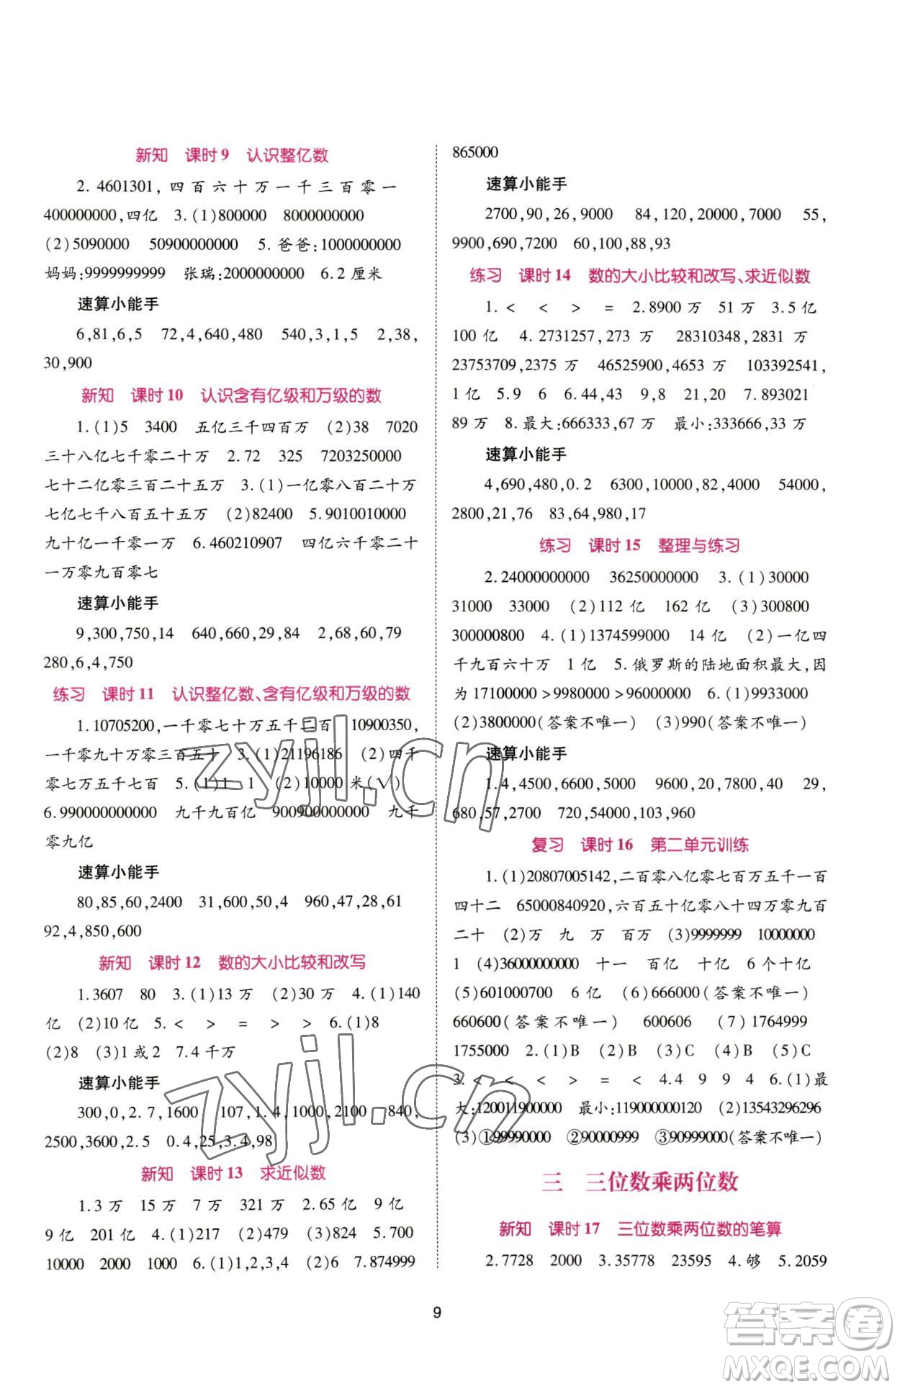 新知 课时 9 认识整亿数
2. 4601301,四百六十万一千三百零一
400000000,四亿 3.(1)800000 8000000000
(2)5090000 50900000000 5. 爸爸:1000000000
妈妈:9999999999 张瑞:2000000000 6.2 厘米
速算小能手
6,81,6,5 72,4,640,480 540,3,1,5 2,38,
30,900
新知 课时 10 认识含有亿级和万级的数
1.(1)5 3400 五亿三千四百万 (2)38 7020
三十八亿七千零二十万 2.72 325 7203250000
七十二亿零三百二十五万 3.(1)一百零八亿二十万
七亿八千八百五十五万 (2)82400 5.9010010000
九十亿一千零一万 6.460210907 四亿六千零二十
一万零九百零七
速算小能手
9,300,750,14 640,660,29,84 2,68,60,79
280,6,4,750
练习 课时 11 认识整亿数、含有亿级和万级的数
1.10705200,一千零七十万五千二百 10900350,
一千零九十万零三百五十 3.(1)21196186 (2)四千
零七万五千七百 5.(1)1 1 (2)10000 米(√)
6.990000000000 九千九百亿 900900000000 九千
零九亿
速算小能手
80,85,60,2400 31,600,50,4 960,47,28,61
92,4,850,600
新知 课时 12 数的大小比较和改写
1.3607 80 3.(1)13 万 (2)30 万 4.(1)140
亿 (2)10 亿 5. < > = > > 6.(1)8
(2)8 (3)1 或 2 7.4 千万
速算小能手
300,0,2.7,1600 107,1.4,1000,2100 840,
2500,3600,2.5 0.4,25,3.4,98
新知 课时 13 求近似数
1.3 万 15 万 7 万 321 万 2.65 亿 9 亿
9 亿 201 亿 4.(1)217 (2)479 (3)824 5.700
10000 2000 1000 6.(1)1,2,3,4 (2)6 7.874999
865000
速算小能手
2700,90,26,9000 84,120,20000,7000 55,
9900,690,7200 60,100,88,93
练习 课时 14 数的大小比较和改写、求近似数
1. < < > = 2.8900 万 51 万 3.5 亿
100 亿 4.2731257,273 万 28310348,2831 万
23753709,2375 万 46525900,4653 万 103392541,
1 亿 5.9 6 6.44,43 9,8 21,20 7.893021
89 万 8. 最大:666333,67 万 最小:333666,33 万
速算小能手
4,690,480,0.2 6300,10000,82,4000 54000,
2800,21,76 83,64,980,17
练习 课时 15 整理与练习
2.24000000000 36250000000 3.(1)30000
31000 33000 (2)112 亿 162 亿 (3)300800
300000800 4.(1)1374599000 14 亿 (2)一亿四
千九百六十万 1 亿 5. 俄罗斯的陆地面积最大,因
为 17100000>9980000>9600000 6.(1)9933000
(2)3800000(答案不唯一) (3)990(答案不唯一)
速算小能手
1.4,4500,6600,5000 9600,20,7800,40 29,
680,57,2000 720,54000,103,960
复习 课时 16 第二单元训练
1.(1)20807005142,二百零八亿零七百万五千一百
四十二 65000840920,六百五十亿零八十四万零九百
二十 (2)万 九 万 百万 (3)9999999 10000000
1 (4)36000000000 十一 百亿 十亿 6 个十亿
(5)601000700 6 亿 (6)666000(答案不唯一)
660600(答案不唯一) 600606 (7)1764999
1755000 2.(1)B (2)B (3)C (4)B (5)C
3. < < < < < 4.4 9 9 4 5.(1)最
大:120011900000 最小:119000000120 (2)13543296296
(3)①99990000 ②90000999 ③90999000(答案不唯一)
三 三位数乘两位数
新知 课时 17 三位数乘两位数的笔算
2.7728 2000 3.35778 23595 4. 够 5.2059
9
zyjl.cn
zyjl.cn
答案圈
MXQE.COM